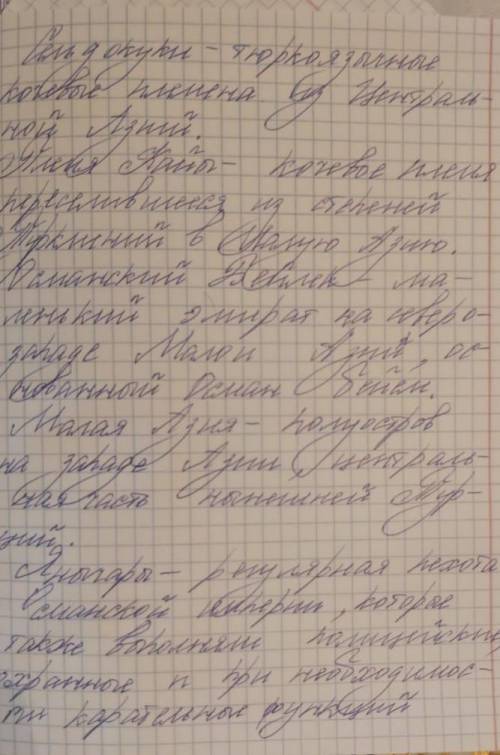 Сельджуки - тюркоязычные
кочевые племена из Централь-
ной Азий.
Племя Кайы - кочевое племя
переселившееся из степеней
Туркмений в Малую Азию.
Османский Бейлек - ма-
ленький эмират на северо-
западе Малой Азий, ос-
нованный Осман бейем.
Малая Азия - полуостров
на западе Азии, централь-
ная часть нынешней Тур-
ций.
Янычары - регулярная пехота
Османской империи, которые
также выполняли полицейские
охранные и при необходимос-
ти карательные функций